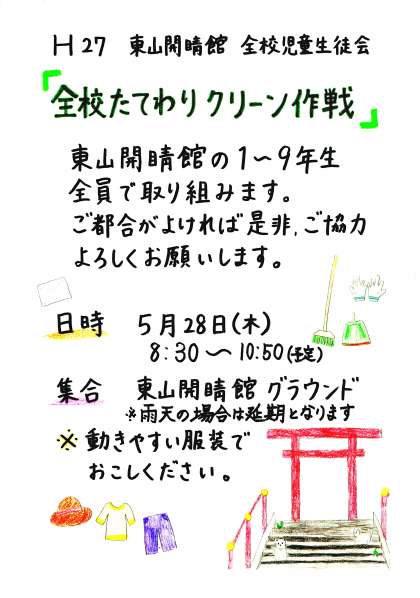 H27 東山開晴館 全校児童生徒会
「全校たてわり クリーン作戦」
東山開晴館の1～9年生
全員で取り組みます。
ご都合がよければ是非、ご協力
よろしくお願いします。
日時 5月28日(木)
8:30～10:50(予定)
集合 東山開晴館 グラウンド
※雨天の場合は延期となります
※動きやすい服装で
おこしください。